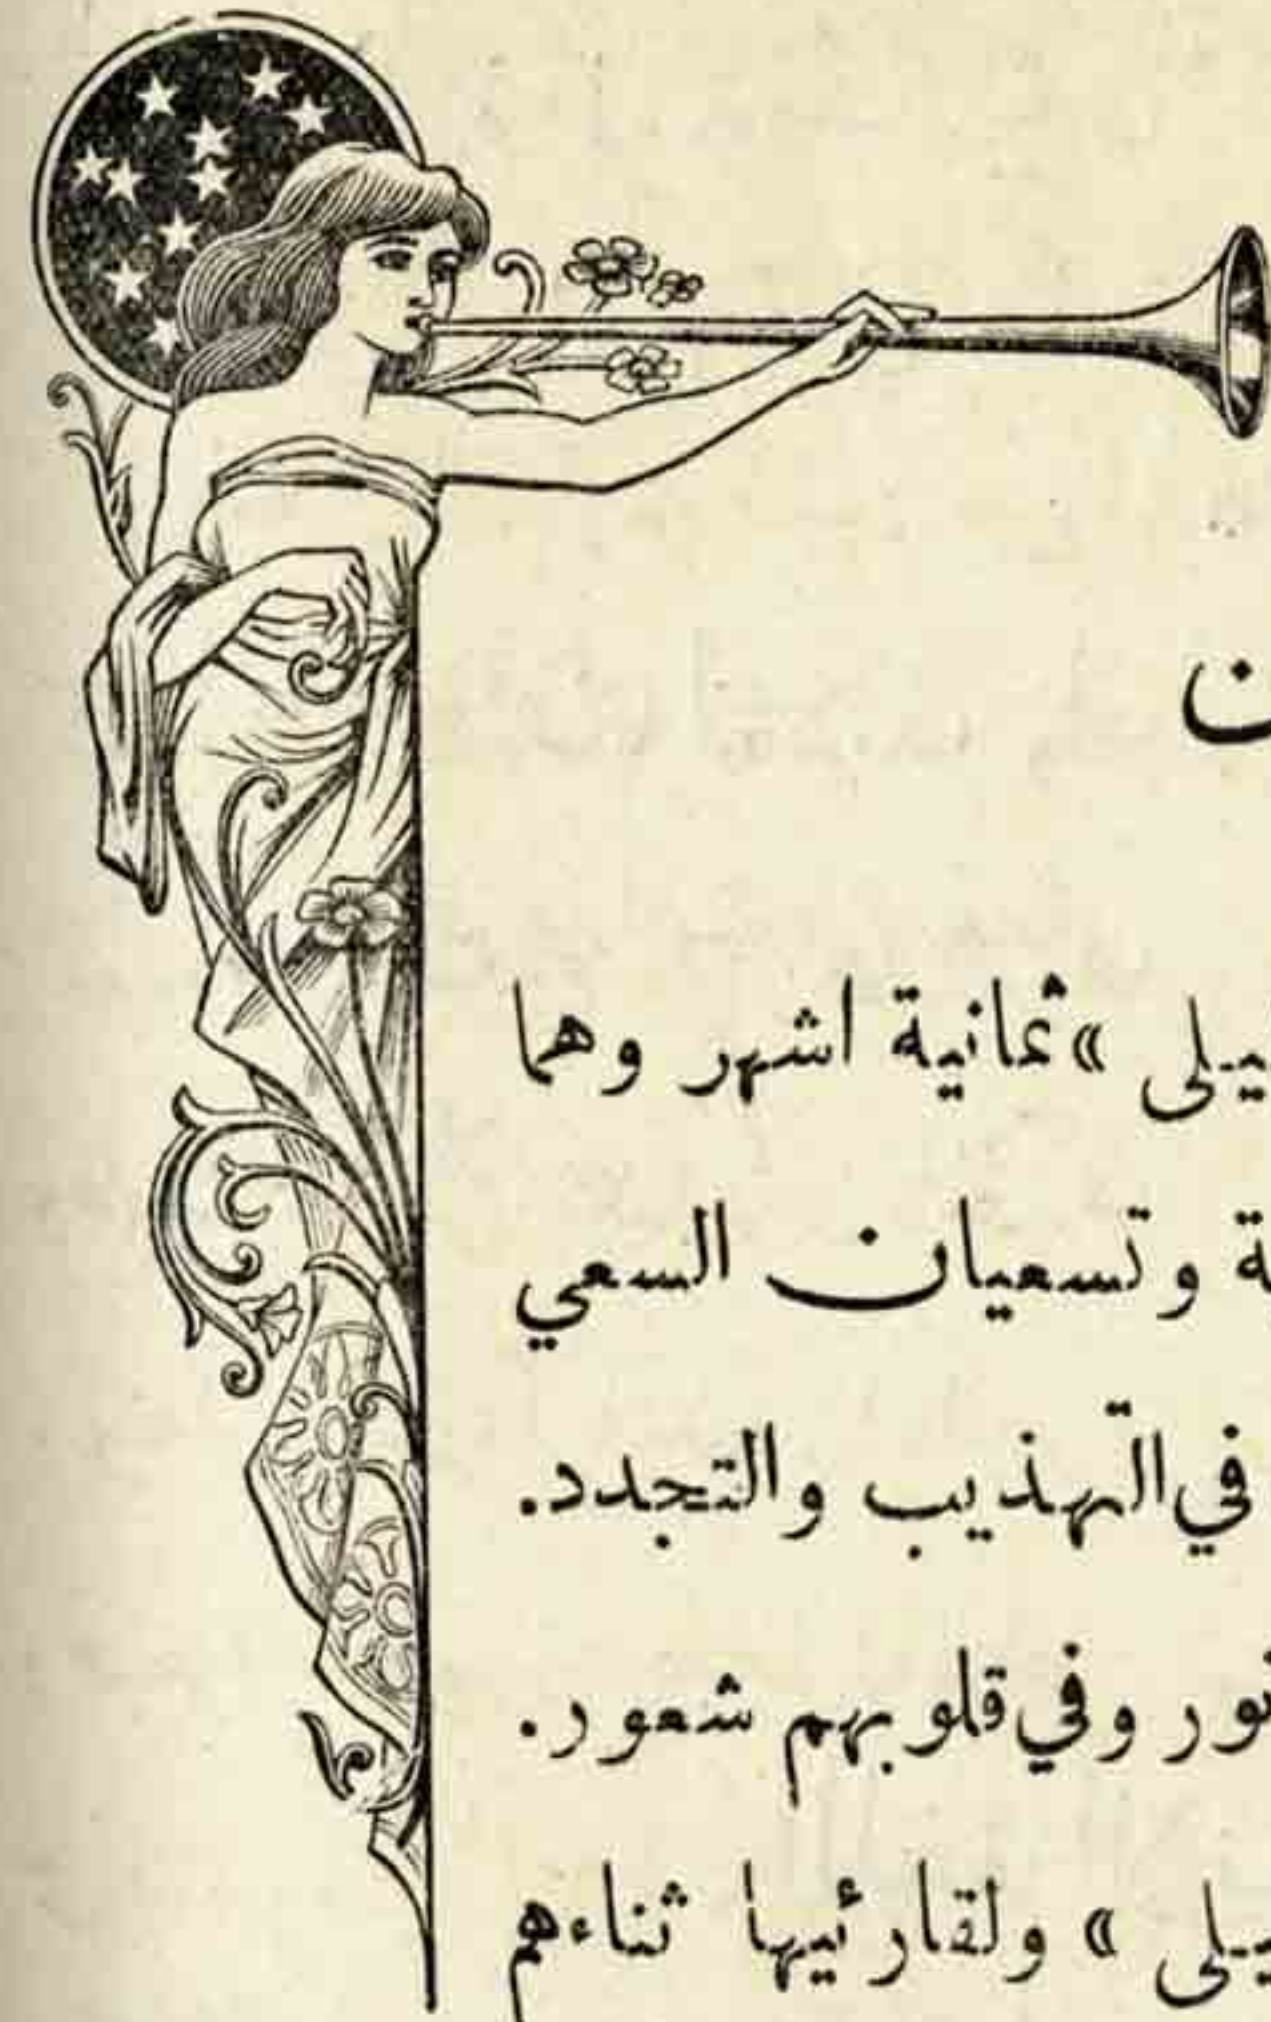 ثمانية اشهر وهما
وتسعيان السعي
في التهذيب والتجدد.
وفي قلوبهم شعور.
» ولقارئيها ثناءهم